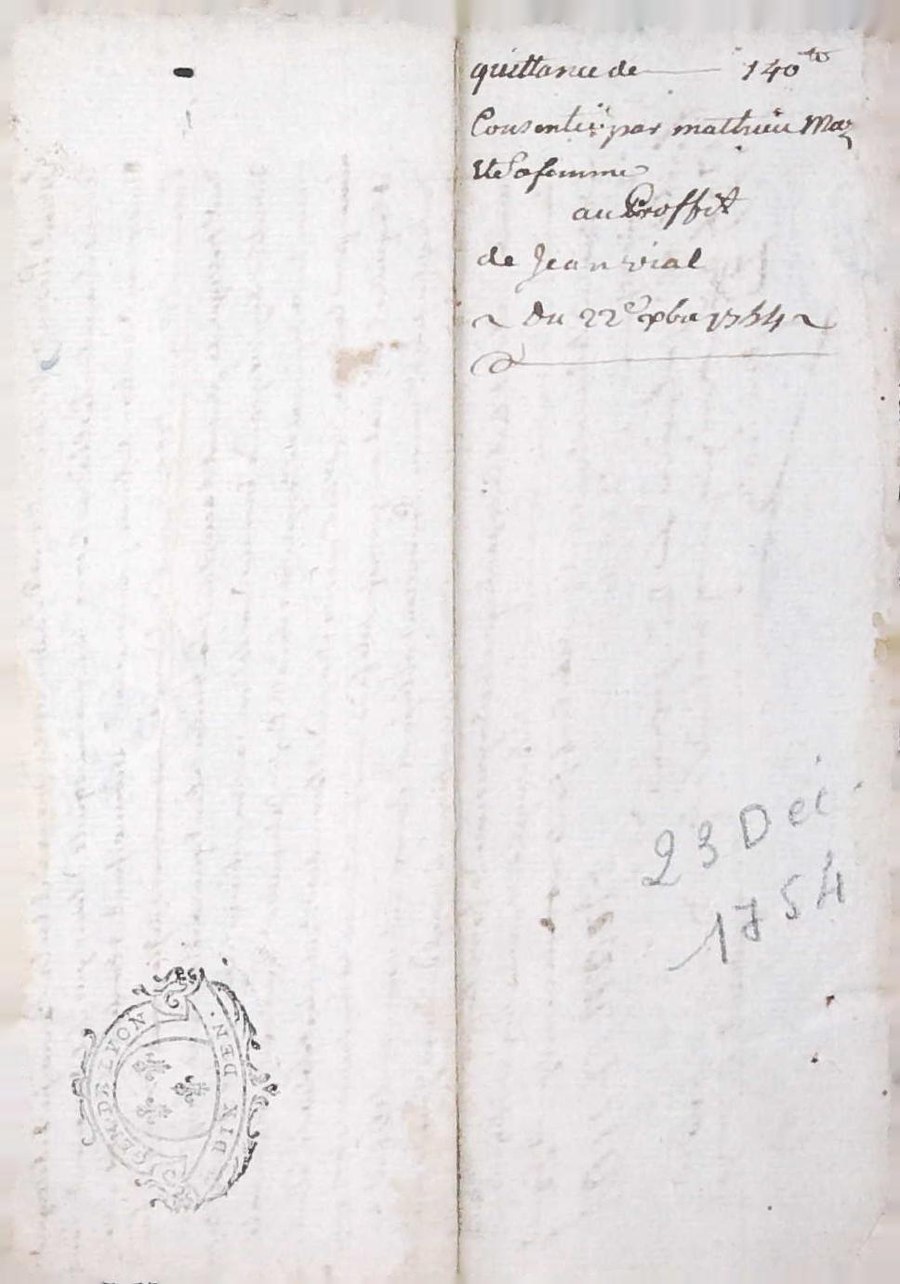 quittance de 140 ᵗᵗ
Consentie par mathieu Maz
et Sa femme
au Proffit
de Jean vial
~ du 22ᵉ xbre 1754 ~
23 Déc.
1754
GEN. DE LYON
DIX DEN.